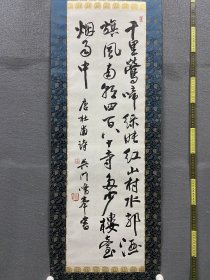 千里鶯啼綠映紅山村水郭酒
旗風南朝四百八十寺多少樓臺
烟雨中 唐杜甫詩 吳門書